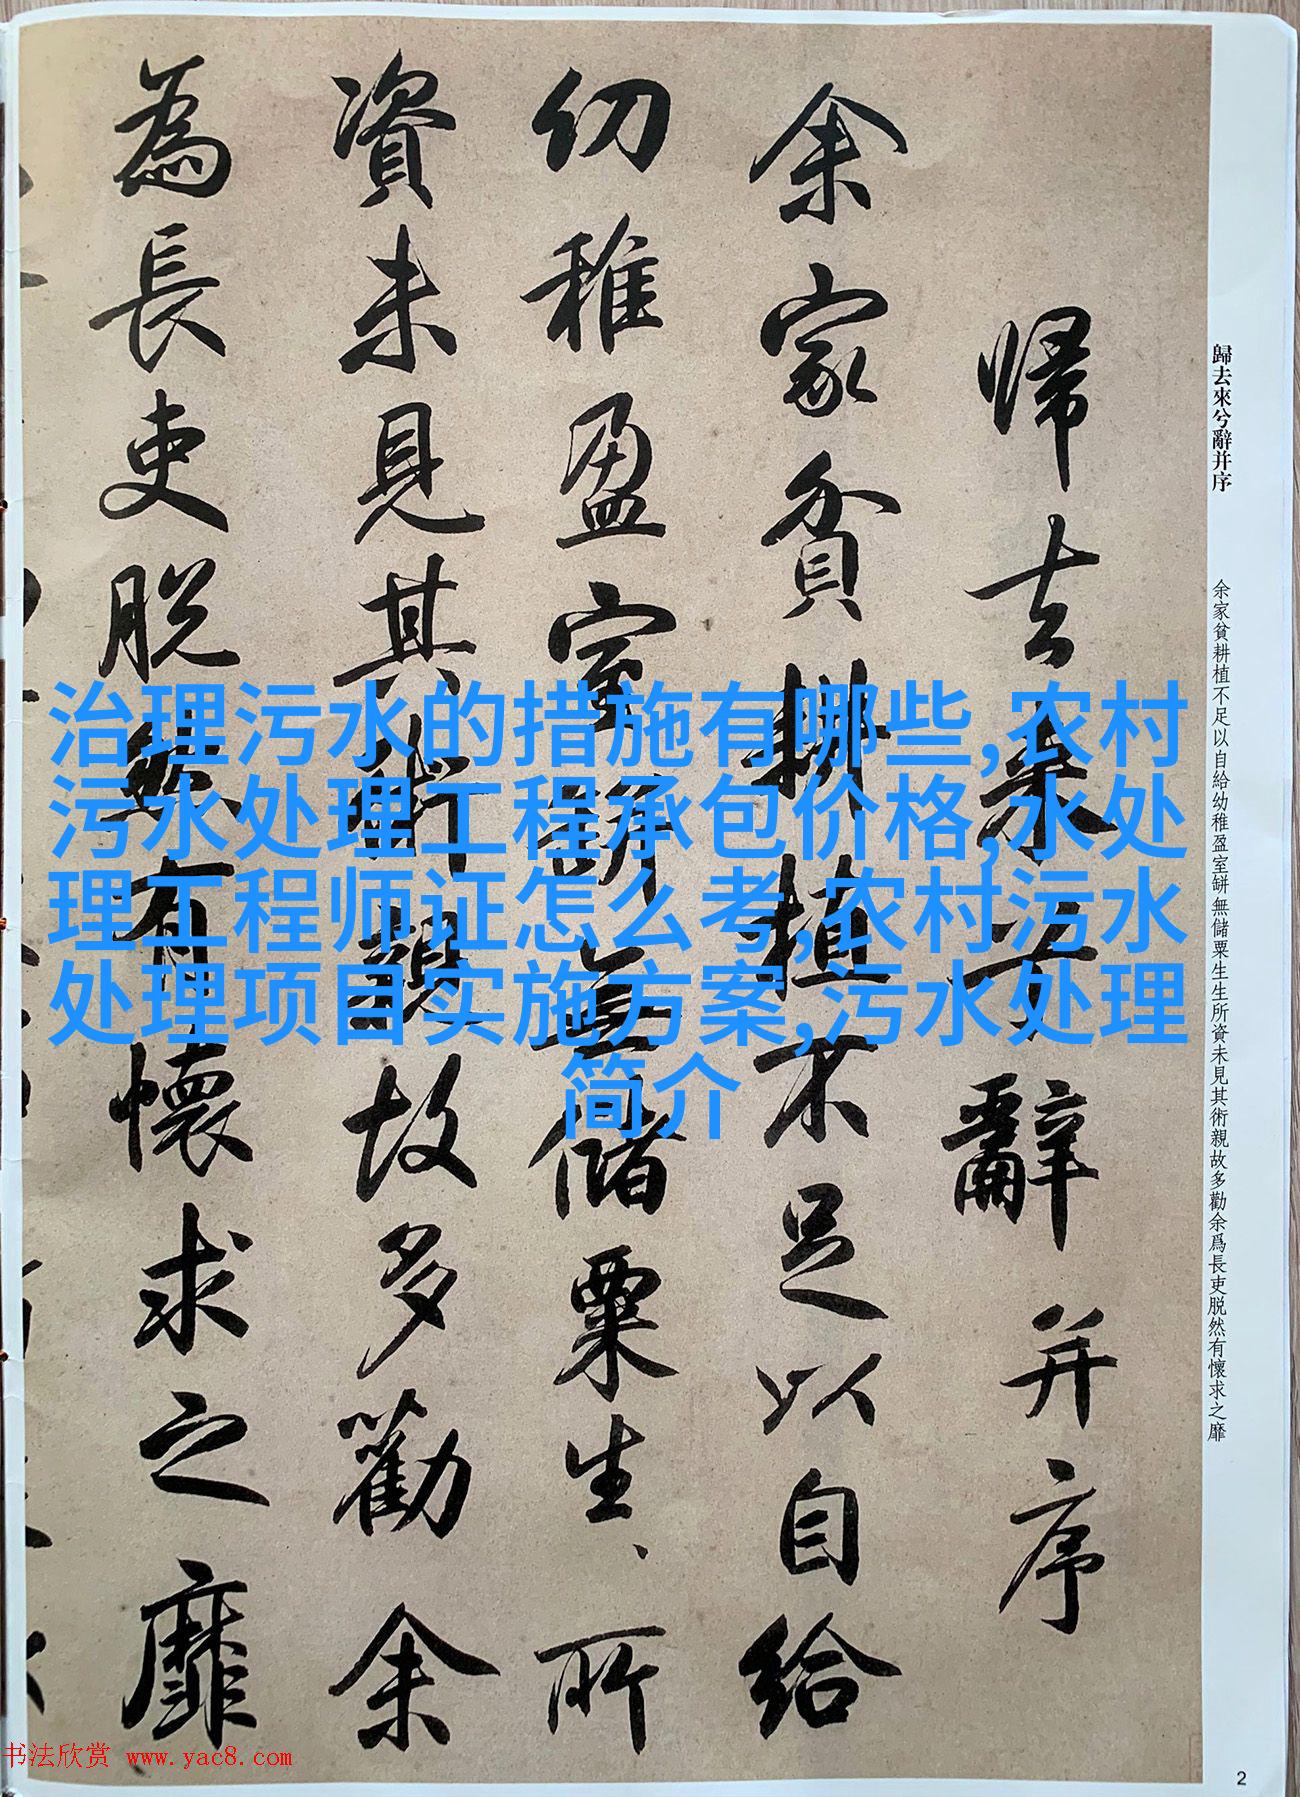 歸去來兮辭并序
余家貧耕植不足以自給幼稚盈室缾無儲粟生生所資未見其術親故多勸余爲長吏脱然有懷求之靡
歸去來兮辭并序
余家貧耕植不足以自給
幼稚盈室缾無儲粟生、所
資未見其術親故多勸余
為長吏脱然有懷求之靡
治理污水的措施有哪些,农村
污水处理工程承包价格,水处
理工程师证怎么考,农村污水
处理项目实施方案,污水处理
简介
书法欣赏 www.yac8.com
2